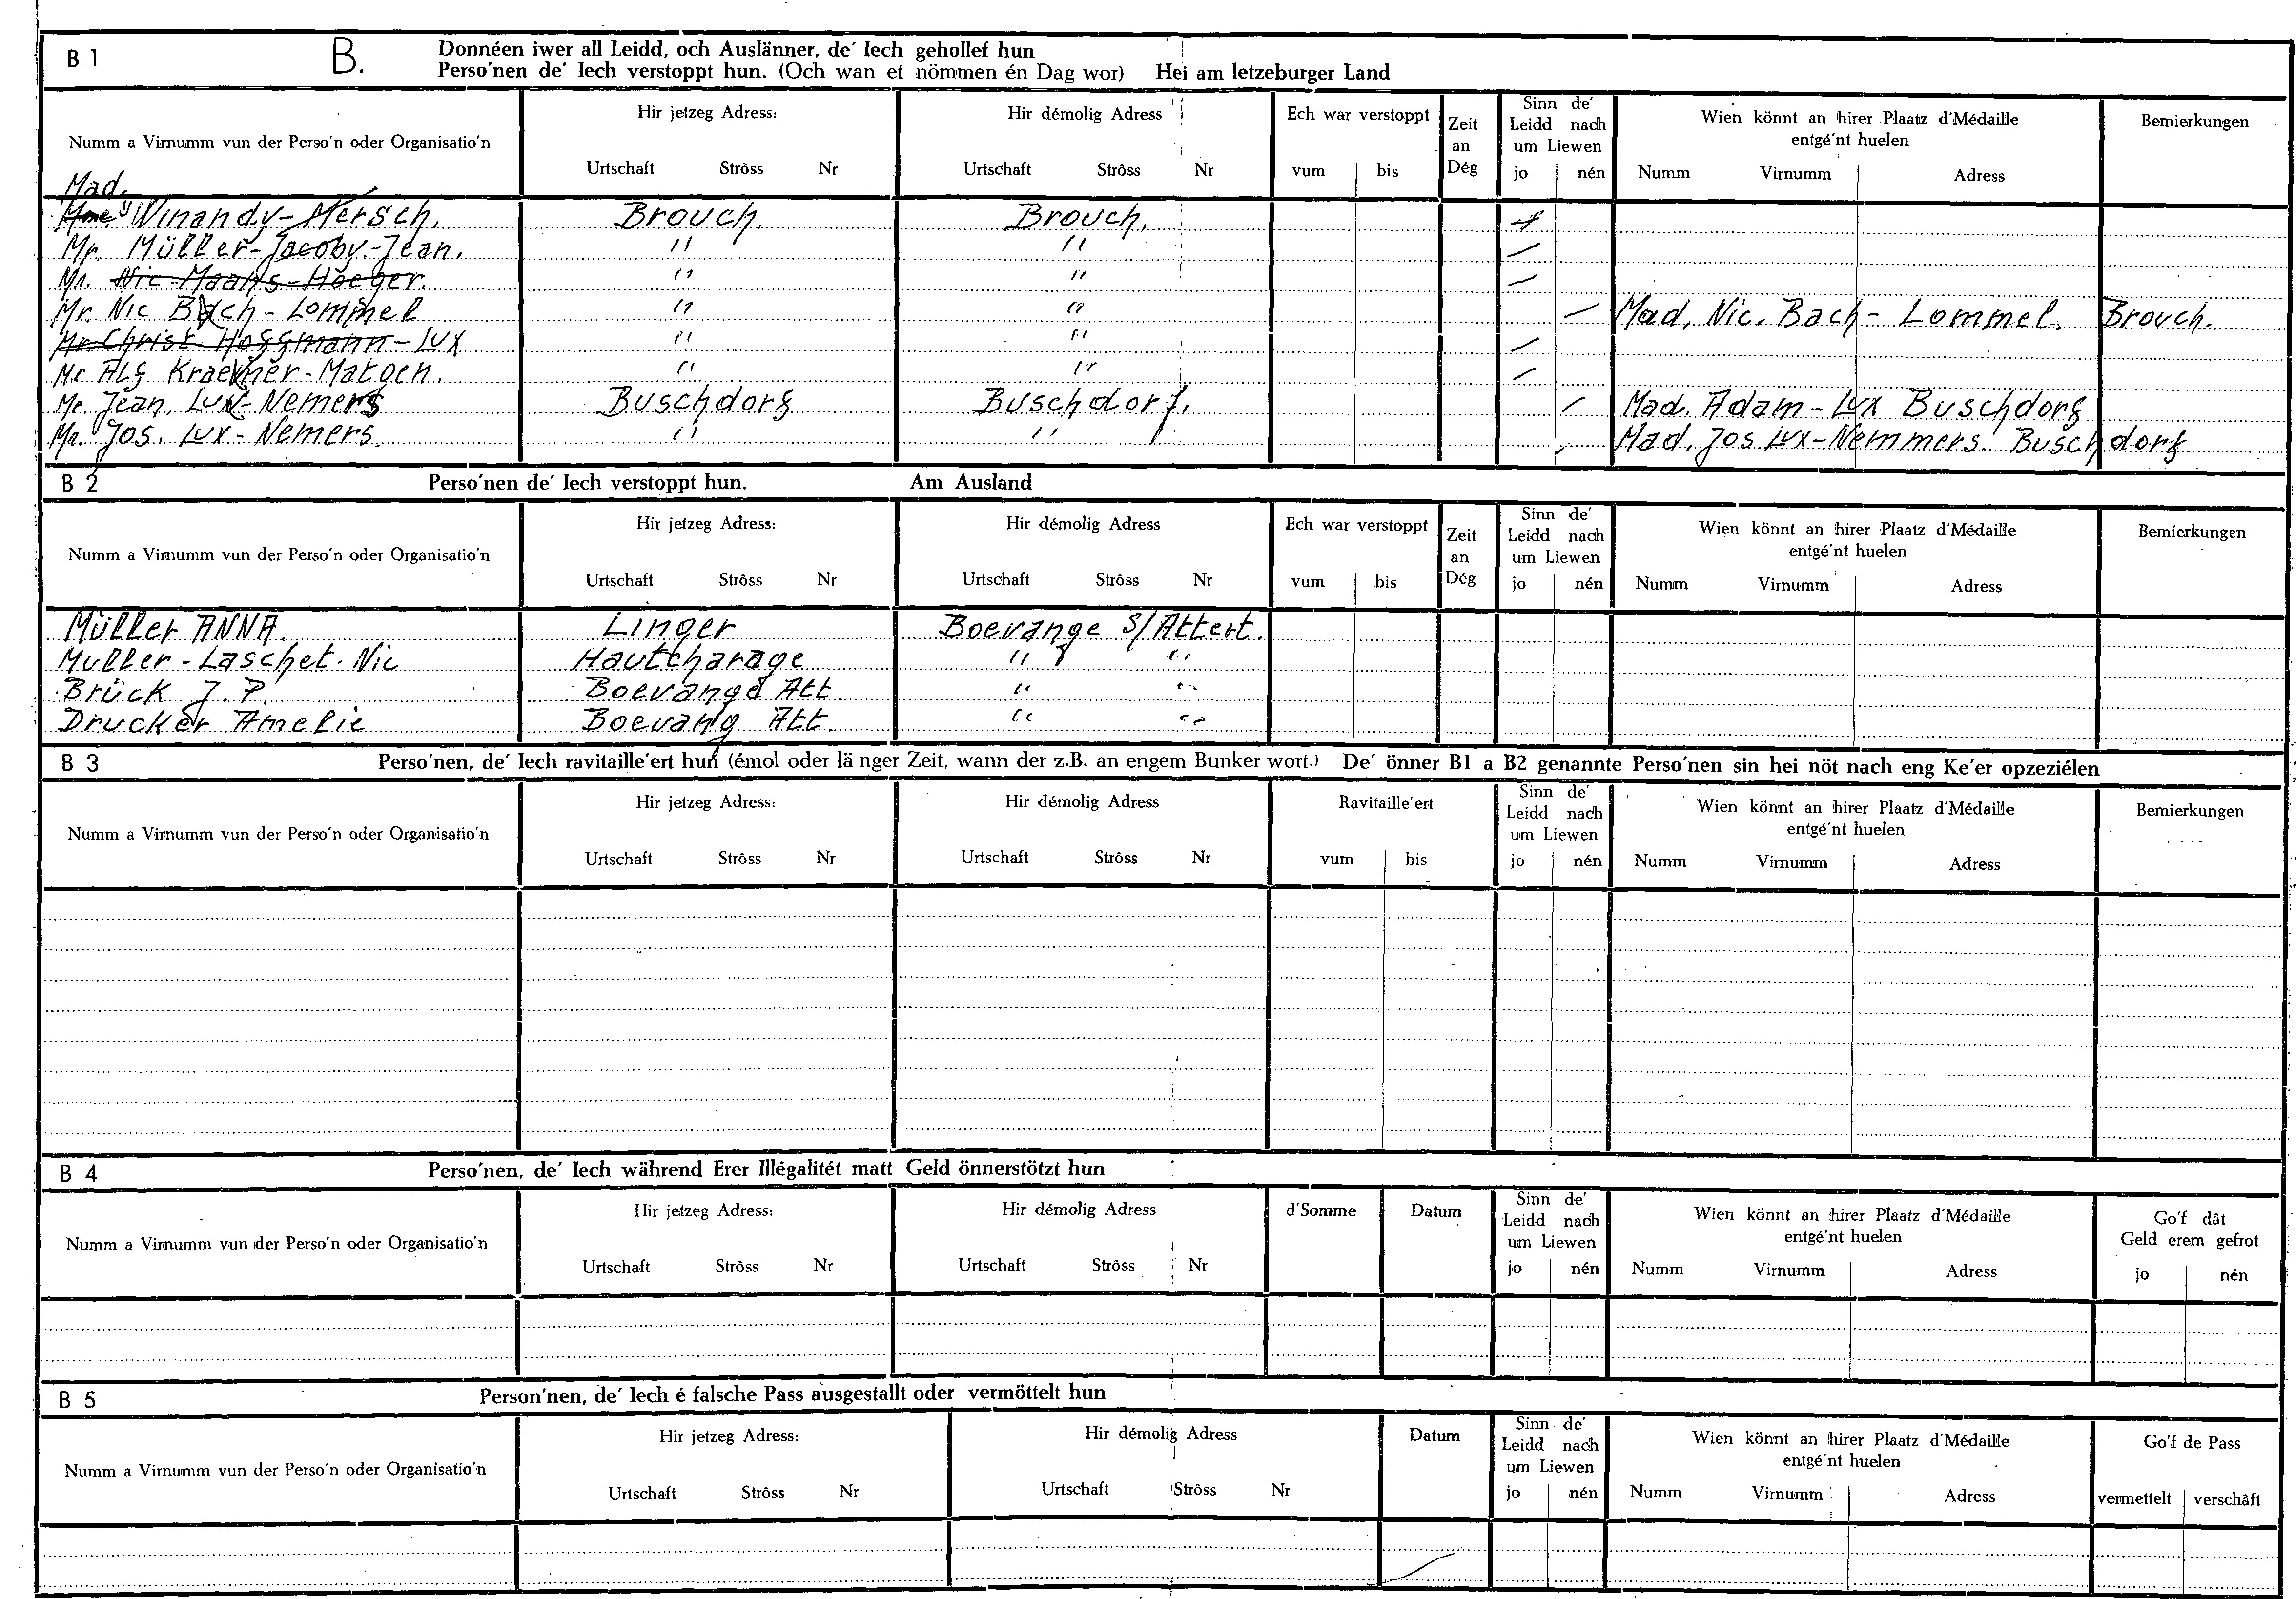 B 1 B. Donnéen iwer all Leidd, och Auslänner, de' Iech gehollef hun
Perso'nen de' Iech verstoppt hun. (Och wan et nömmen én Dag wor) Hei am letzeburger Land
Numm a Virnumm vun der Perso'n oder Organisatio'n Hir jetzeg Adress: Urtschaft Strôss Nr Hir démolig Adress Urtschaft Strôss Nr Ech war verstoppt vum bis Zeit an Dég Sinn de' Leidd nach um Liewen jo nén Wien könnt an hirer Plaatz d'Médaille entgé'nt huelen Numm Virnumm Adress Bemierkungen
Mad.
Mme Winandy-Mersch. Brouch. Brouch.
Mr. Müller-Jacoby-Jean. " "
Mr. Nic Maans-Hoeger. " "
Mr. Nic Bach-Lommel " " Mad. Nic. Bach-Lommel. Brouch.
Mr Christ Hoffmann-Lux " "
Mr Alf Kraemer-Matgen. " "
Mr Jean. Lux-Nemers Buschdorf Buschdorf. Mad. Adam-Lux Buschdorf
Mr. Jos. Lux-Nemers. " " Mad. Jos Lux-Nemmers. Buschdorf
B 2 Perso'nen de' Iech verstoppt hun. Am Ausland
Numm a Virnumm vun der Perso'n oder Organisatio'n Hir jetzeg Adress: Urtschaft Strôss Nr Hir démolig Adress Urtschaft Strôss Nr Ech war verstoppt vum bis Zeit an Dég Sinn de' Leidd nach um Liewen jo nén Wien könnt an hirer Plaatz d'Médaille entgé'nt huelen Numm Virnumm Adress Bemierkungen
Müller ANNA. Linger Boevange S/Attert.
Muller-Laschet. Nic Hautcharage " "
Brück J. P. Boevange Att " "
Drucker Amelie Boevang Att " "
B 3 Perso'nen, de' Iech ravitaille'ert hun (émol oder länger Zeit, wann der z.B. an engem Bunker wort.) De' önner B1 a B2 genannte Perso'nen sin hei nöt nach eng Ke'er opzeziélen
Numm a Virnumm vun der Perso'n oder Organisatio'n Hir jetzeg Adress: Urtschaft Strôss Nr Hir démolig Adress Urtschaft Strôss Nr Ravitaille'ert vum bis Sinn de' Leidd nach um Liewen jo nén Wien könnt an hirer Plaatz d'Médaille entgé'nt huelen Numm Virnumm Adress Bemierkungen
B 4 Perso'nen, de' Iech während Erer Illégalitét matt Geld önnerstötzt hun
Numm a Virnumm vun der Perso'n oder Organisatio'n Hir jetzeg Adress: Urtschaft Strôss Nr Hir démolig Adress Urtschaft Strôss Nr d'Somme Datum Sinn de' Leidd nach um Liewen jo nén Wien könnt an hirer Plaatz d'Médaille entgé'nt huelen Numm Virnumm Adress Go'f dât Geld erem gefrot jo nén
B 5 Person'nen, de' Iech é falsche Pass ausgestallt oder vermöttelt hun
Numm a Virnumm vun der Perso'n oder Organisatio'n Hir jetzeg Adress: Urtschaft Strôss Nr Hir démolig Adress Urtschaft Strôss Nr Datum Sinn de' Leidd nach um Liewen jo nén Wien könnt an hirer Plaatz d'Médaille entgé'nt huelen Numm Virnumm Adress Go'f de Pass vermettelt verschâft